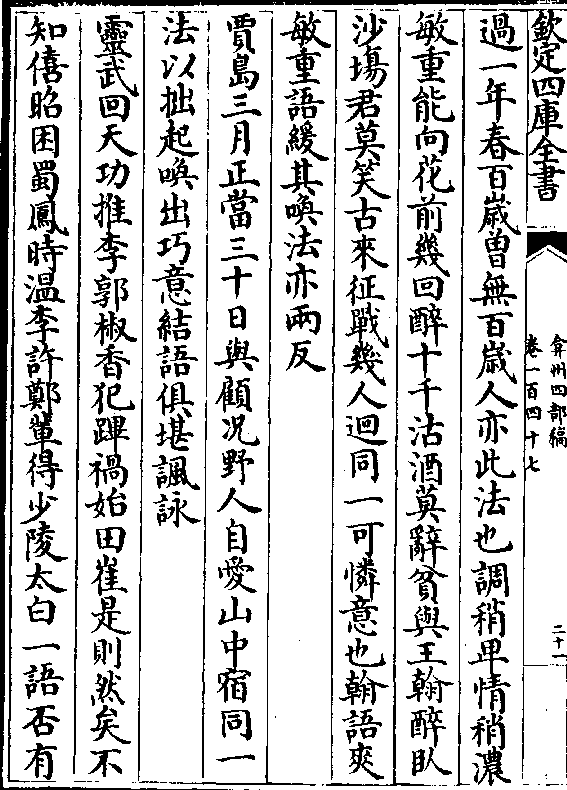 欽定四庫全書
弇州四部稿
卷一百四十七
二十一
過一年春百歲曾無百歲人亦此法也調稍卑情稍濃
敏重能向花前幾回醉十千沽酒莫辭貧與王翰醉臥
沙塲君莫笑古來征戰幾人迴同一可憐意也翰語爽
敏重語緩其喚法亦兩反
賈島三月正當三十日與顧况野人自愛山中宿同一
法以拙起喚出巧意結語俱堪諷詠
靈武回天功推李郭椒香犯蹕禍始田崔是則然矣不
知僖昭困蜀鳳時溫李許鄭輩得少陵太白一語否有